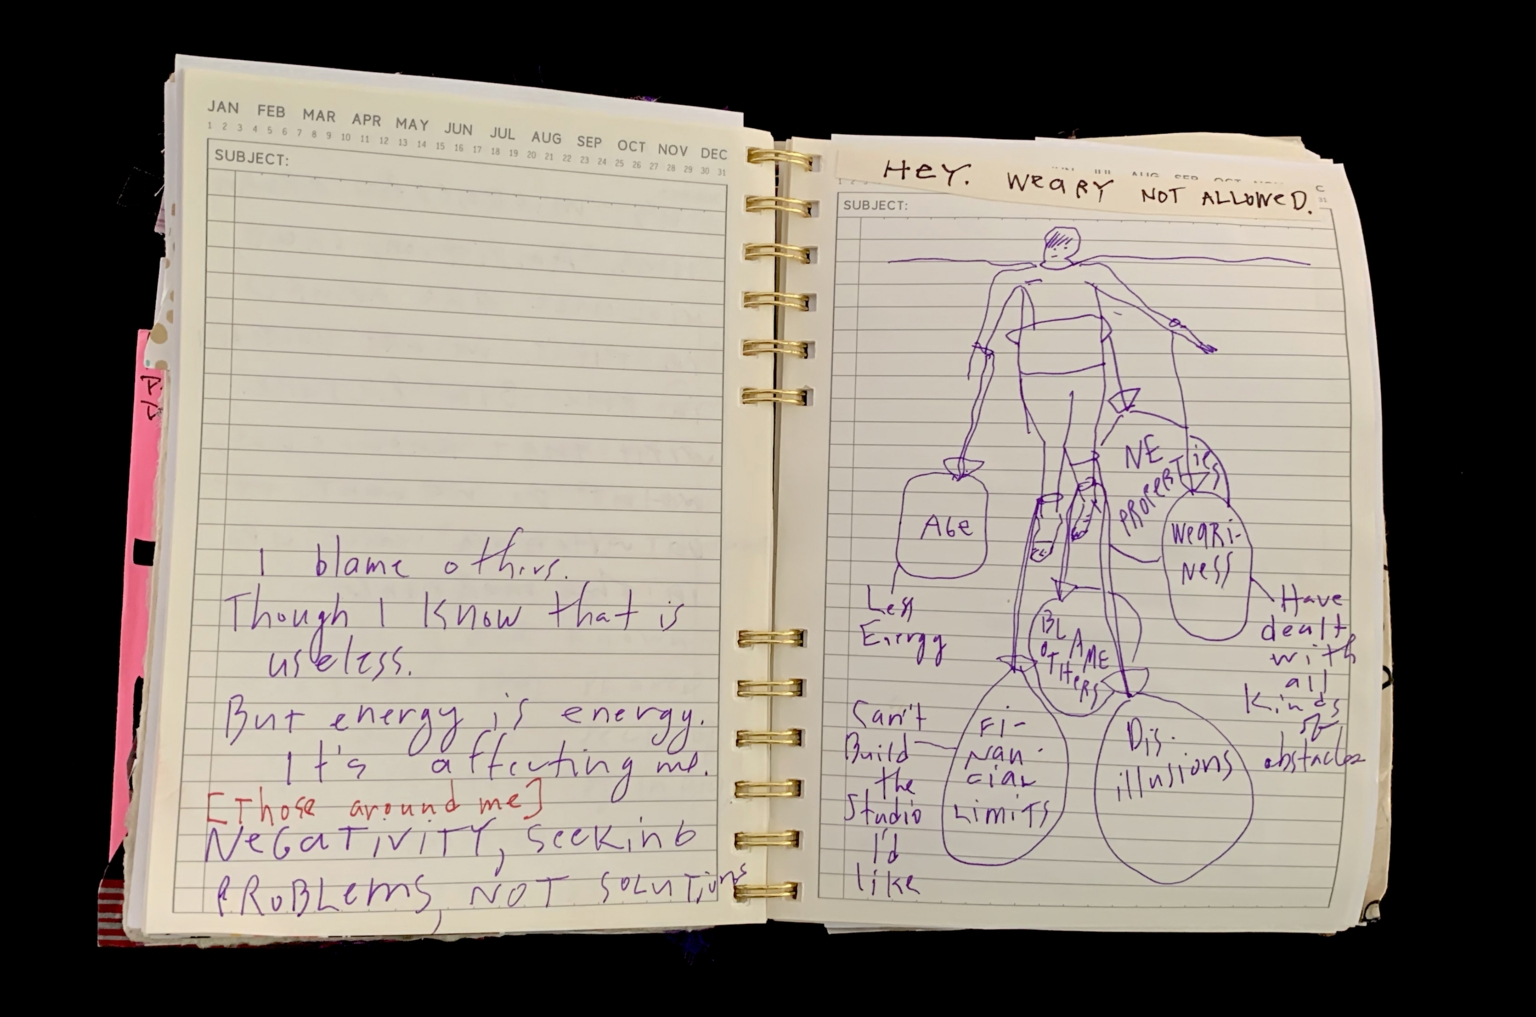 JAN FEB MAR APR MAY JUN JUL AUG SEP OCT NOV DEC
1 2 3 4 5 6 7 8 9 10 11 12 13 14 15 16 17 18 19 20 21 22 23 24 25 26 27 28 29 30 31
SUBJECT:
I blame others.
Though I know that is
useless.
But energy is energy.
It's affecting me.
[Those around me]
NEGATIVITY, SEEKING
PROBLEMS, NOT SOLUTIONS
HEY. WEARY NOT ALLOWED.
SUBJECT:
NE
PROPERTIES
AGE
WEARI-
NESS
Less
Energy
Have
dealt
with
all
kinds
of
obstacles
BLAME
OTHERS
Can't
Build
the
Studio
I'd
like
FI-
NAN-
CIAL
LIMITS
Dis-
illusions